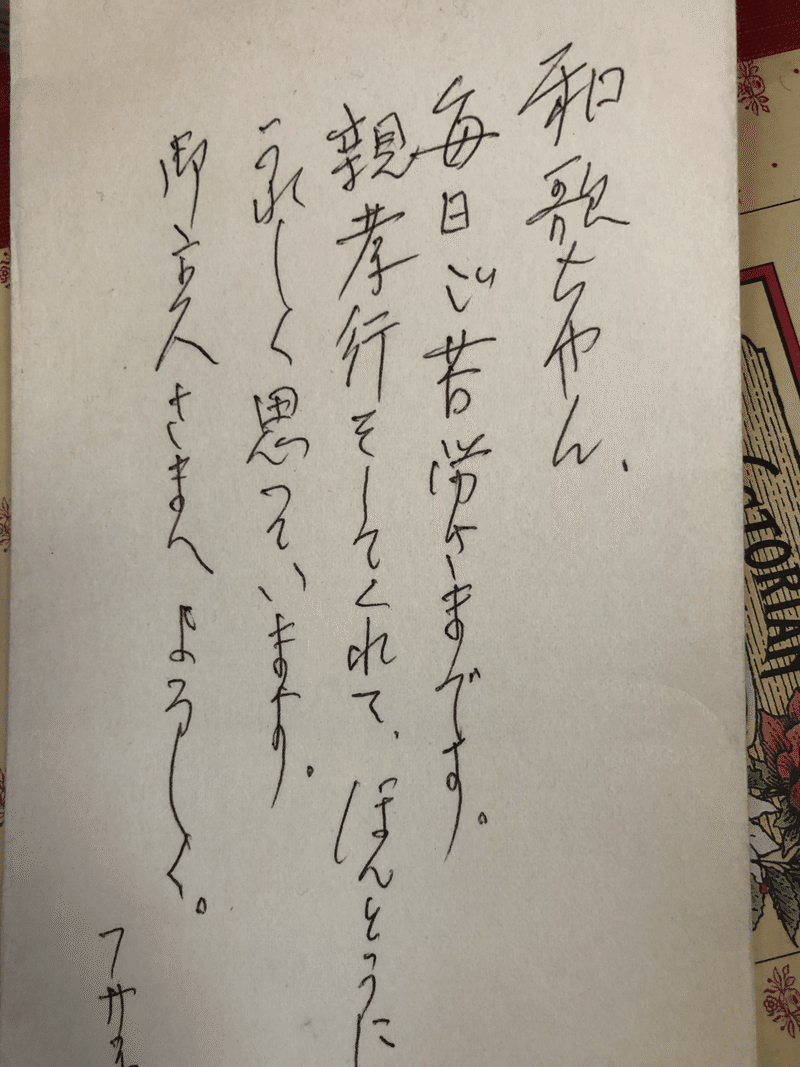 和歌ちゃん、
毎日ご苦労さまです。
親孝行をしてくれて、ほんとうに
うれしく思っています。
御主人さまへよろしく。
CTORIAN